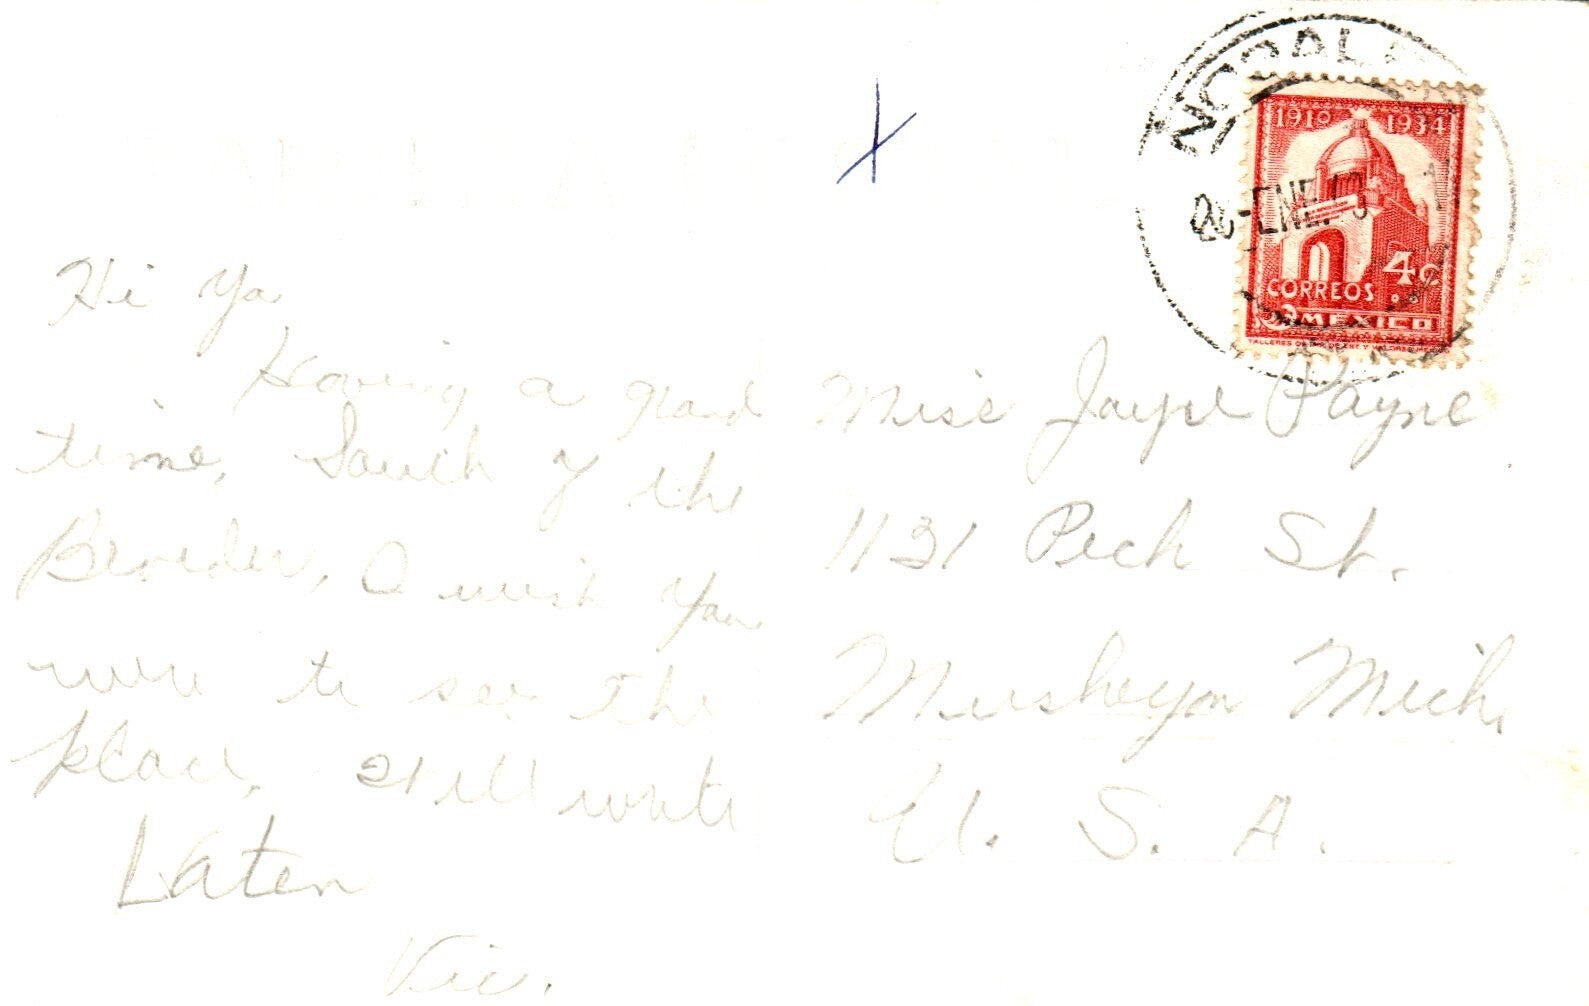 NOGALE
1910 1934
ENE.
4c
CORREOS
MEXICO
Hi Ya
Having a grand
time, South of the
Boarder, I wish you
were to see the
place, I'll write
Later
Vic.
Miss Jayne Payne
1131 Peck St.
Muskegon Mich.
U. S. A.